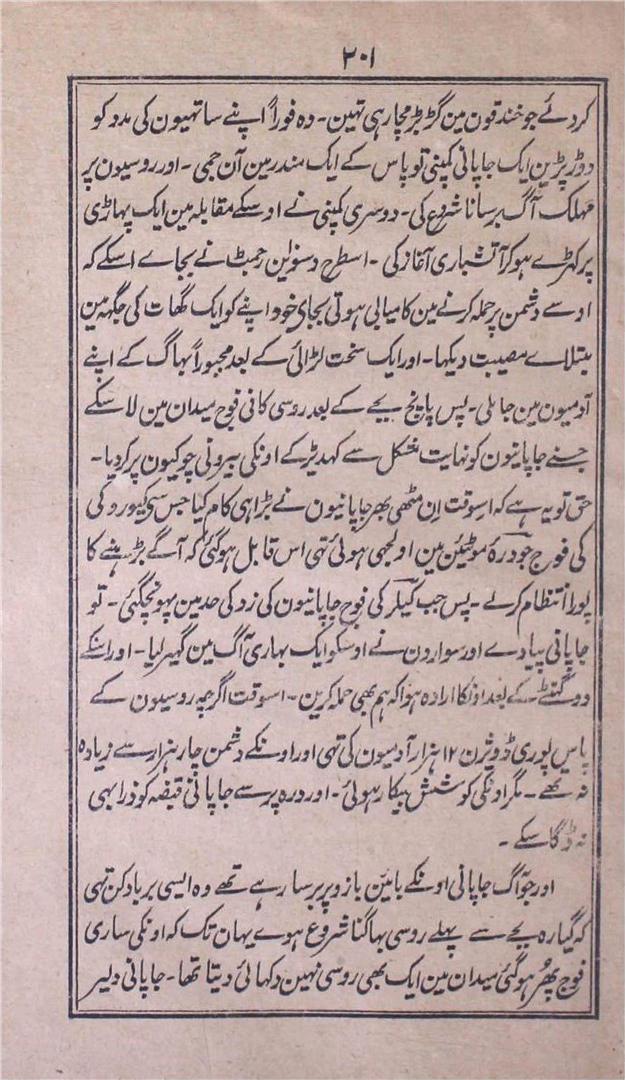 ۲۰۱
کردئے جو خندقون مین گڑبڑ مچارہی تہین ۔ وہ فوراً اپنے ساتہیون کی مدد کو
دوڑ پڑین ایک جاپانی کمپنی تو پاس کے ایک مندر مین آن جمی ۔ اور روسیون پر
مہلک آگ برسانا شروع کی ۔ دوسری کمپنی نے اوسکے مقابلہ مین ایک پہاڑی
پر کہڑے ہوکر آتشباری آغاز کی ۔ اسطرح دسوٰین رجمٹ نے بجاے اسکے کہ
اوسے دشمن پر حملہ کرنے مین کامیابی ہوتی بجای خود اپنے کو ایک گھات کی جگہہ مین
مبتلاے مصیبت دیکہا ۔ اور ایک سخت لڑائی کے بعد مجبوراً بہاگ کے اپنے
آدمیون مین جا ملی ۔ پس پانچ بجے کے بعد روسی کافی فوج میدان مین لا سکے
جسنے جاپانیون کو نہایت مشکل سے کہدیڑ کے اونکی بیرونی چوکیون پر کردیا ۔
حق تو یہ ہے کہ اسوقت ان مٹھی بھر جاپانیون نے بڑا ہی کام کیا جس سی کیورو کی
کی فوج جو درۂ موٹیئن مین اولجہی ہوئی تہی اس قابل ہوگئی کہ آگے بڑہنے کا
پورا انتظام کرلے ۔ پس جب کیلر کی فوج جاپانیون کی زد کی حد مین پہونچگئی ۔ تو
جاپانی پیادے اور سوارون نے اوسکو ایک بہاری آگ مین گہیر لیا ۔ اور اسکے
دو گہنٹے کے بعد اونکا ارادہ ہوا کہ ہم بھی حملہ کرین ۔ اسوقت اگرچہ روسیون کے
پاس پوری ڈویژن ۱۲ ہزار آدمیون کی تہی اور اونکے دشمن چار ہزار سے زیادہ
نہ تھے ۔ مگر اونکی کوشش بیکار ہوئی ۔ اور درہ پر سے جاپانی قبضہ کو ذرا بہی
نہ ڈگا سکے ۔
اور جو آگ جاپانی اونکے بائین بازو پر برسا رہے تھے وہ ایسی برباد کن تہی
کہ گیارہ بجے سے پہلے روسی بہاگنا شروع ہوے یہان تک کہ اونکی ساری
فوج پھُر ہوگئی میدان مین ایک بھی روسی نہین دکہائی دیتا تھا ۔ جاپانی دلیر